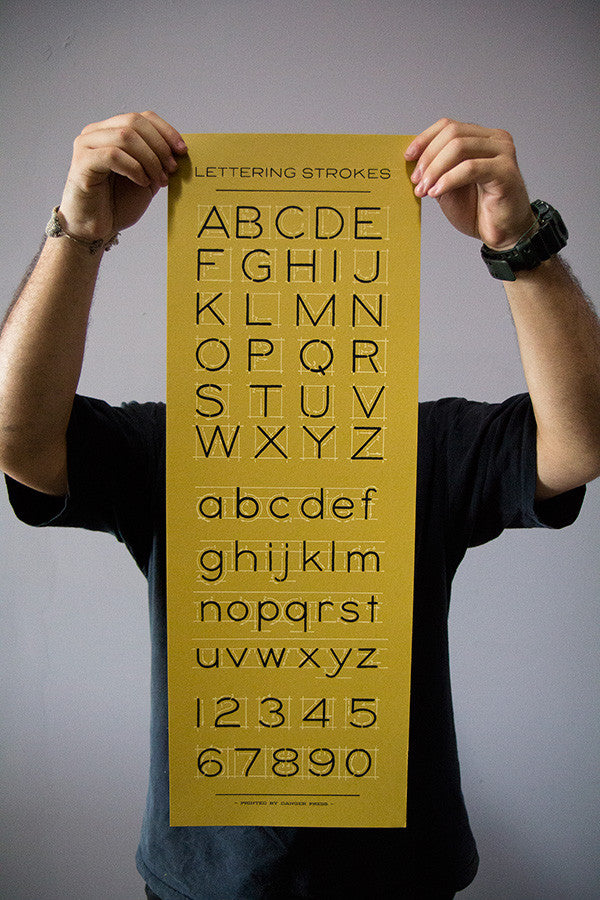 LETTERING STROKES
ABCDE
FGHIJ
KLMN
OPQR
STUV
WXYZ
abcdef
ghijklm
nopqrst
uvwxyz
12345
67890
- PRINTED BY DANGER PRESS -